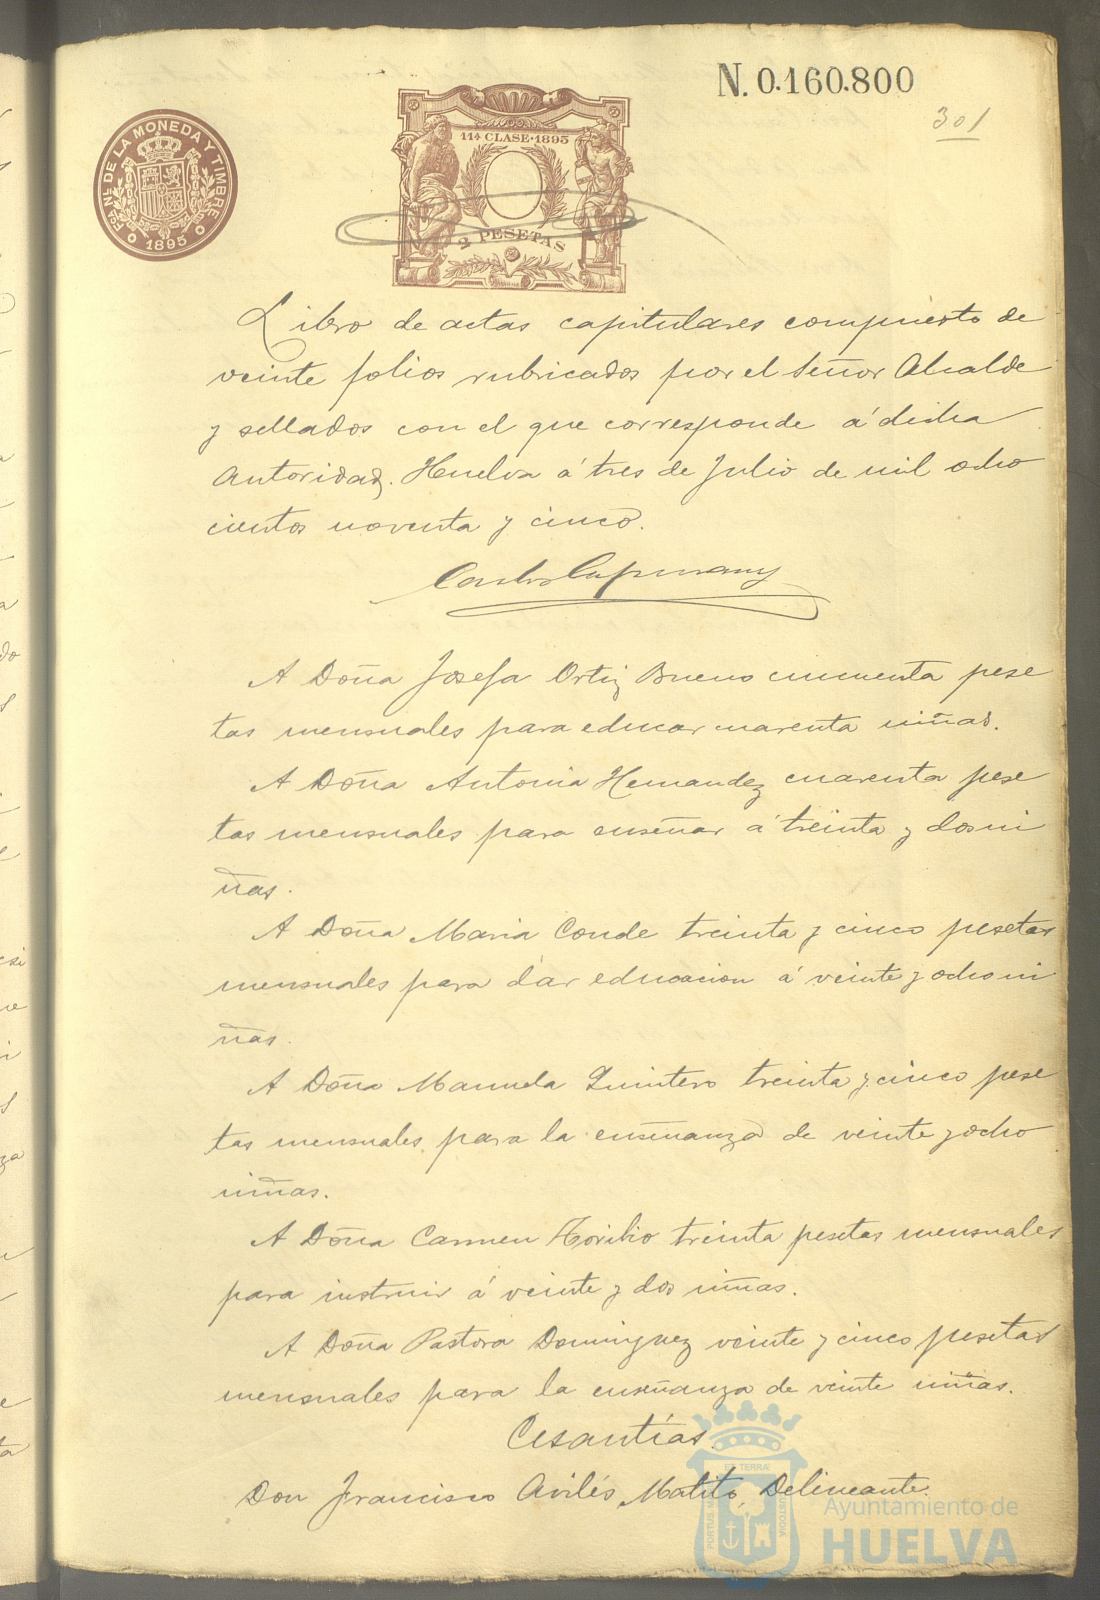 N. 0.160.800
301
FCA. NL. DE LA MONEDA Y TIMBRE
1895
11ª CLASE-1895
2 PESETAS
Libro de actas capitulares compuesto de
veinte folios rubricados por el Señor Alcalde
y sellados con el que corresponde á dicha
Autoridad. Huelva á tres de Julio de mil ocho
cientos noventa y cinco.
A Doña Josefa Ortiz Bueno cincuenta pese
tas mensuales para educar cuarenta niñas.
A Doña Antonia Hernandez cuarenta pese
tas mensuales para enseñar á treinta y dos ni
ñas.
A Doña Maria Conde treinta y cinco pesetas
mensuales para dar educacion á veinte y ocho ni
ñas.
A Doña Manuela Quintero treinta y cinco pese
tas mensuales para la enseñanza de veinte y ocho
niñas.
A Doña Carmen treinta pesetas mensuales
para instruir á veinte y dos niñas.
A Doña Pastora Dominguez veinte y cinco pesetas
mensuales para la enseñanza de veinte niñas.
Cesantías.
Don Francisco Avilés Matito, Delineante.
PORTUS MARIS ET TERRAE CUSTODIA
Ayuntamiento de
HUELVA